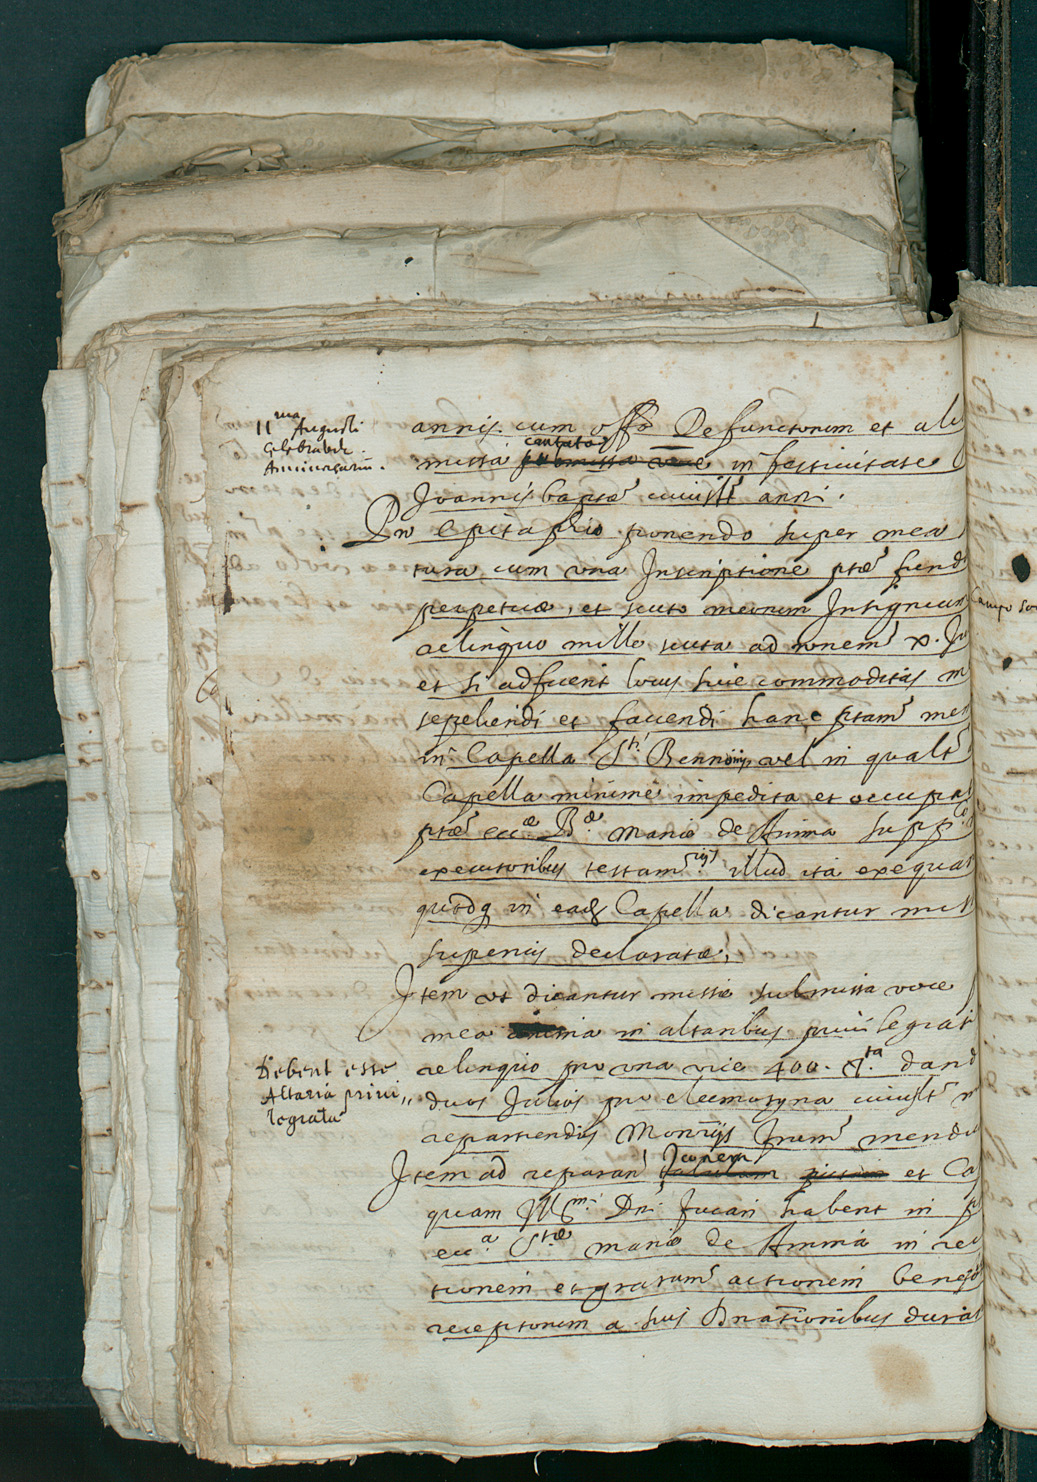 11ma Augusti
celebratur
Anniversarium.
annis. cum offo Defunctorum et ali
missa cantata submissa voce in festivitate
Joannis baptae cuiuslt anni.
Pro Epitaphio ponendo super mea
tura cum una Inscriptione ptae fund
perpetuae, et scuto meorum Insignium
relinquo mille scuta ad ronem x. Ju
et si adfuerit locus sive commoditas m
sepeliendi et favendi hanc ptam mem
in Capella Sti Bennonis vel in qualt
Capella minime impedita et occupat
ptae eccae Bae Mariae de Anima supp
executoribus testam illud ita exequat
quodq in eadq Capella dicantur miss
superius declaratae;
Item ut dicantur missae submissa voce
mea anima in altaribus privilegiat
Debent esse
Altaria privi,,
legiata
relinquo pro una vice 400. ta dand
duos Julios pro eleemosyna cuiuslt m
repartiendis Monrijs frum mendi
Item ad reparan Iconem et Ca
quam Illmi Dni Fucari habent in p
ecca Stae Mariae de Anima in rec
tionem et gratiarum actionem benefi
receptorum a suis Dnationibus durat
Campo San